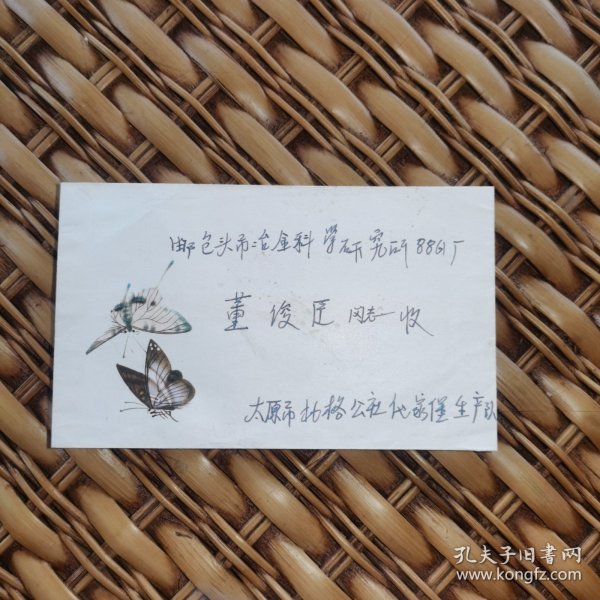 邮包头市冶金科学研究所8861厂
董俊匡同志收
太原市杜格公社化家堡生产队
孔夫子旧书网
www.kongfz.com